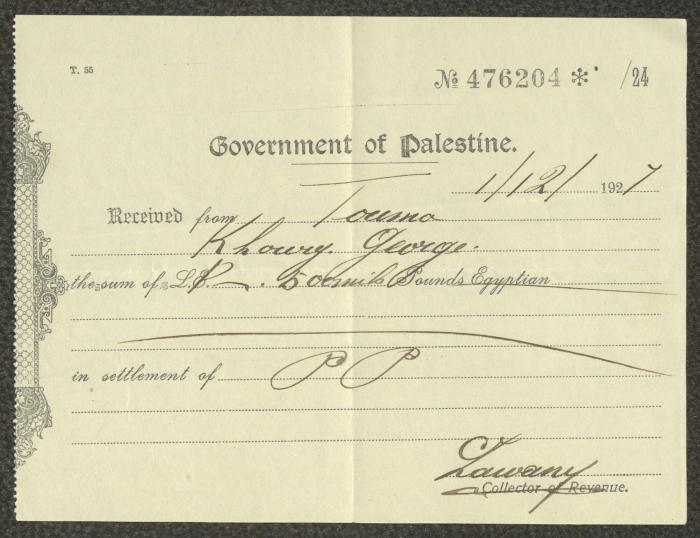 T. 55
№ 476204 * /24
Government of Palestine.
1/12/ 1927
Received from Touma
Khoury George.
the sum of L.P. 500 mils Pounds Egyptian
in settlement of P P
Collector of Revenue.